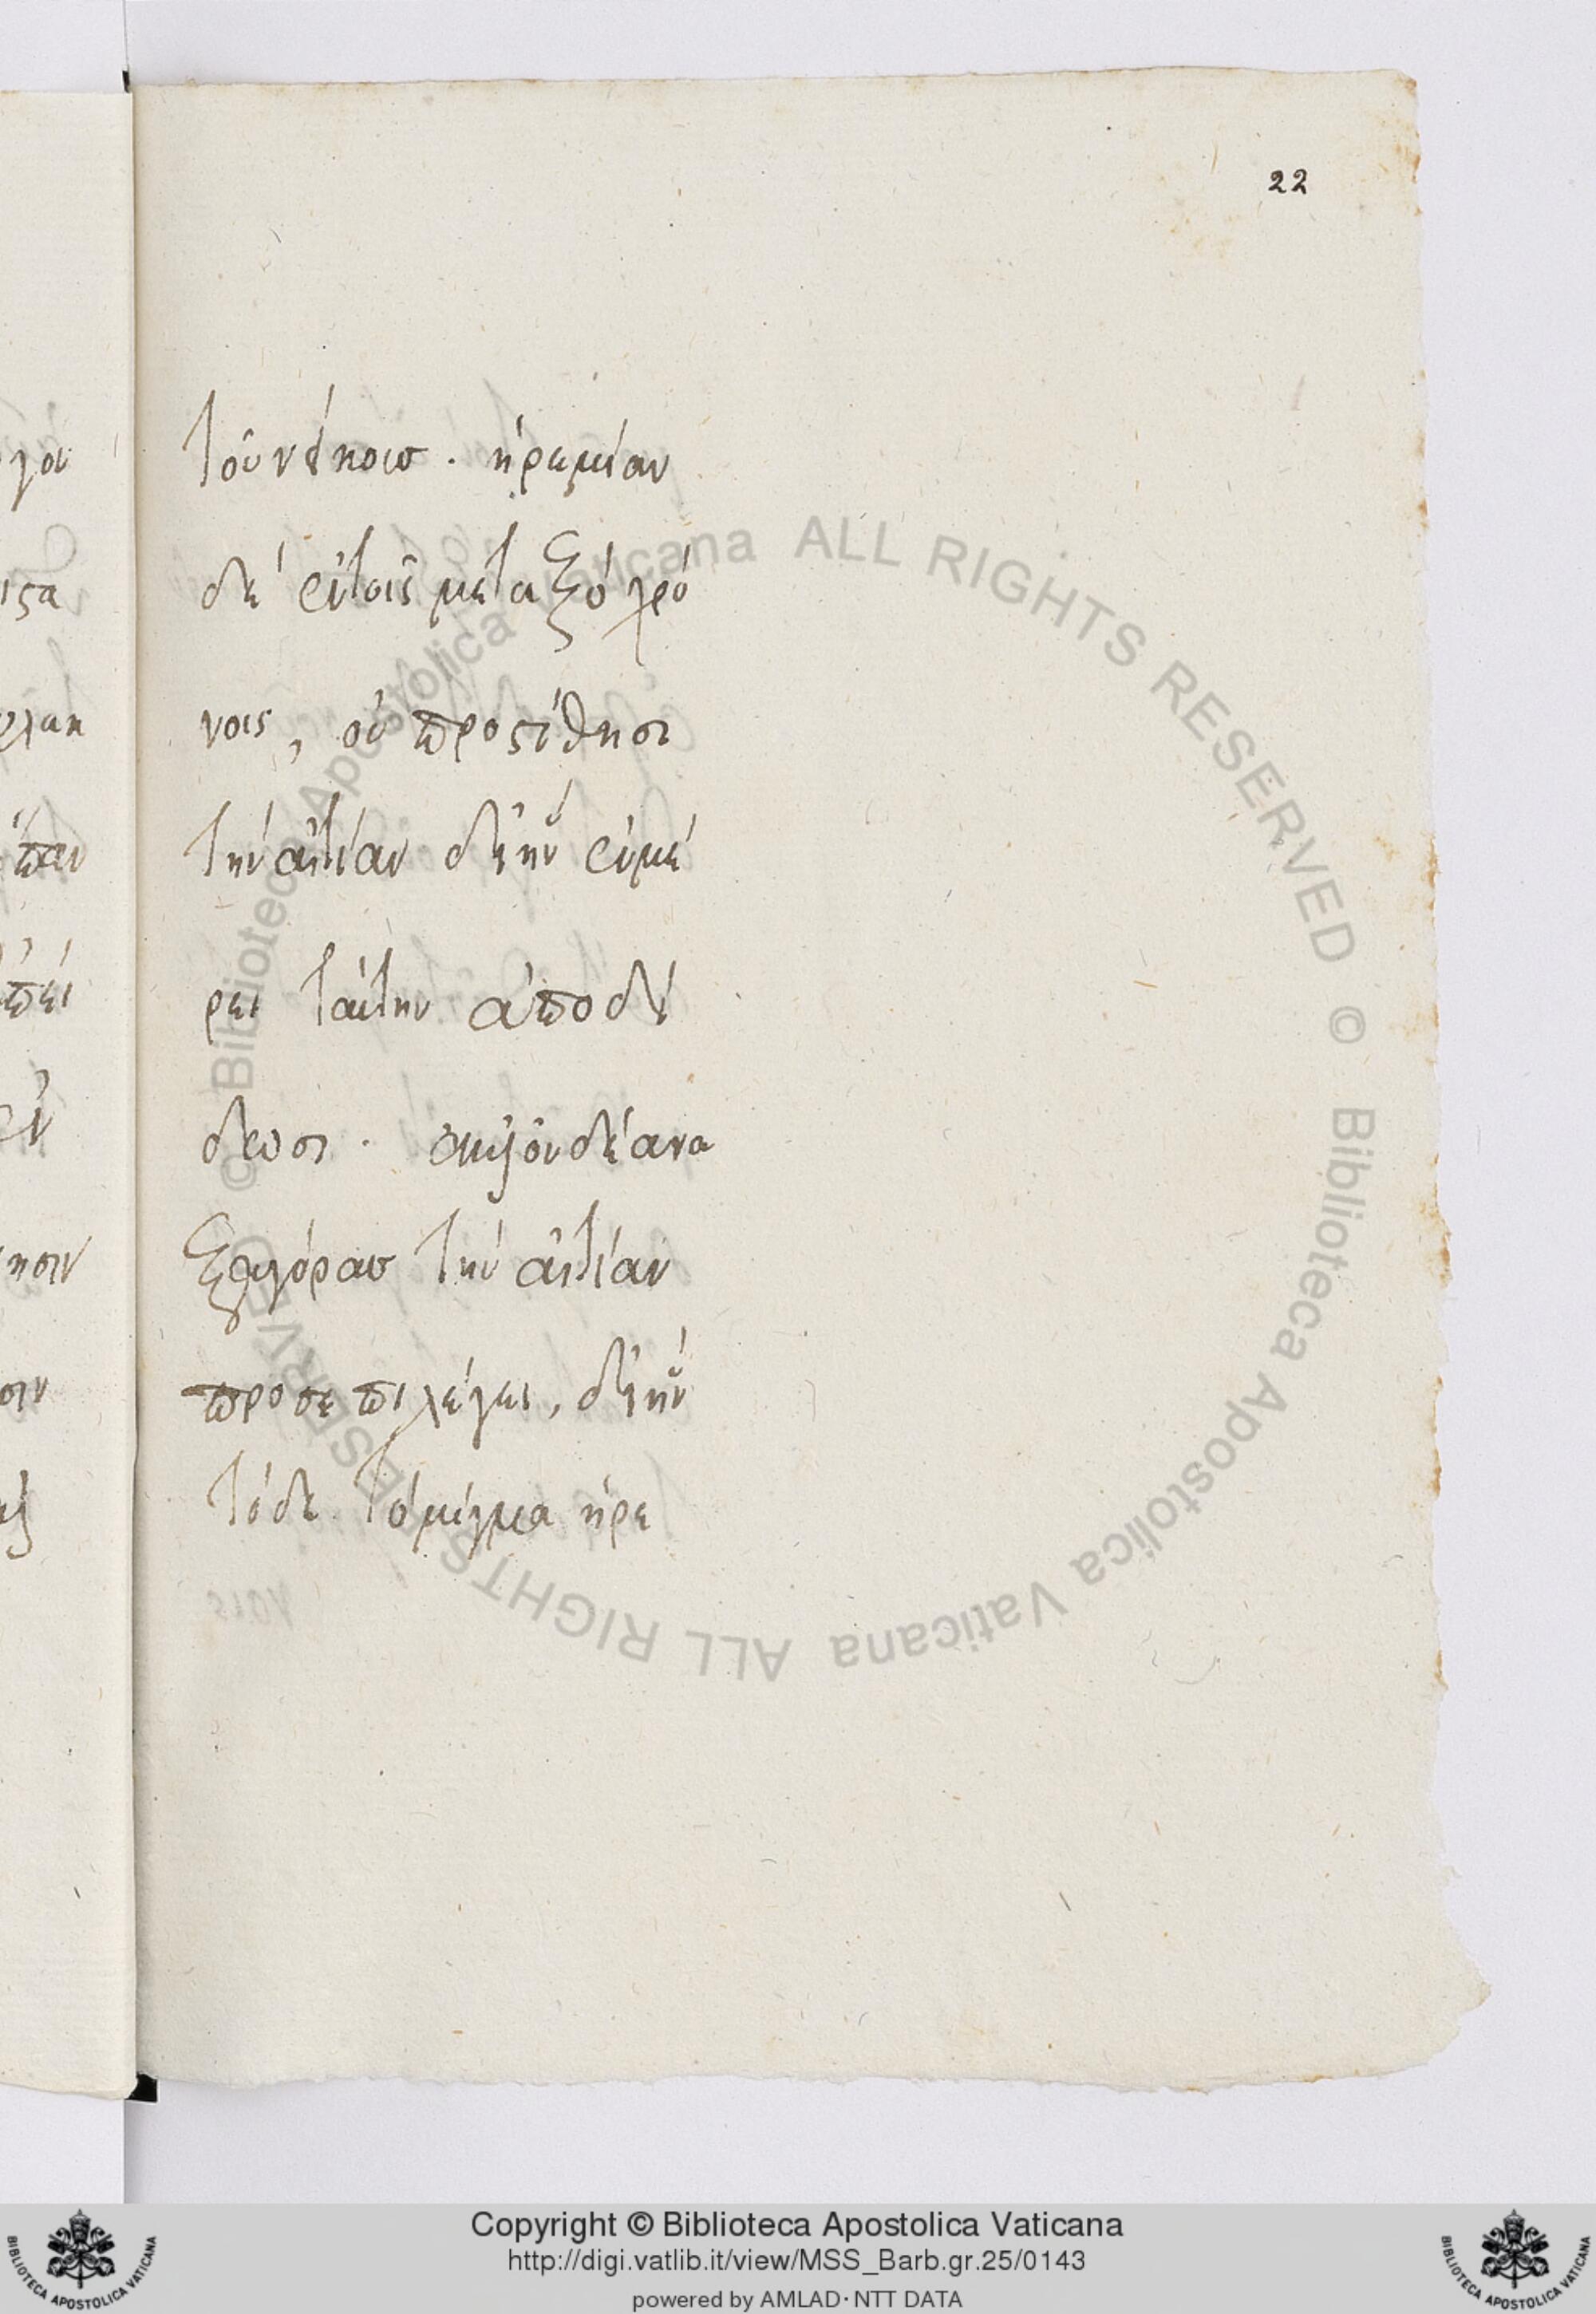 22
τοῦ νείκουσ · ἠρεμίαν
δέ ἐν τοῖς μεταξύ χρό
νοις, οὐ προστίθησι
τήν αἰτίαν δι' ἥν ἐν μέ
ρει ταύτην ἀποδι
δωσι · ἀλλ' οὐδέ ἀνα
ξαγόρασ τήν αἰτίαν
προσεπιλέγει, δι' ἥν
τόδε τό μίγμα ἠρε
γον
ιστα
παν
πει
ἐν
ησιν
σιν
© Biblioteca Apostolica Vaticana ALL RIGHTS RESERVED © Biblioteca Apostolica Vaticana ALL RIGHTS RESERVED
Copyright © Biblioteca Apostolica Vaticana
http://digi.vatlib.it/view/MSS_Barb.gr.25/0143
powered by AMLAD·NTT DATA
BIBLIOTECA APOSTOLICA VATICANA
BIBLIOTECA APOSTOLICA VATICANA